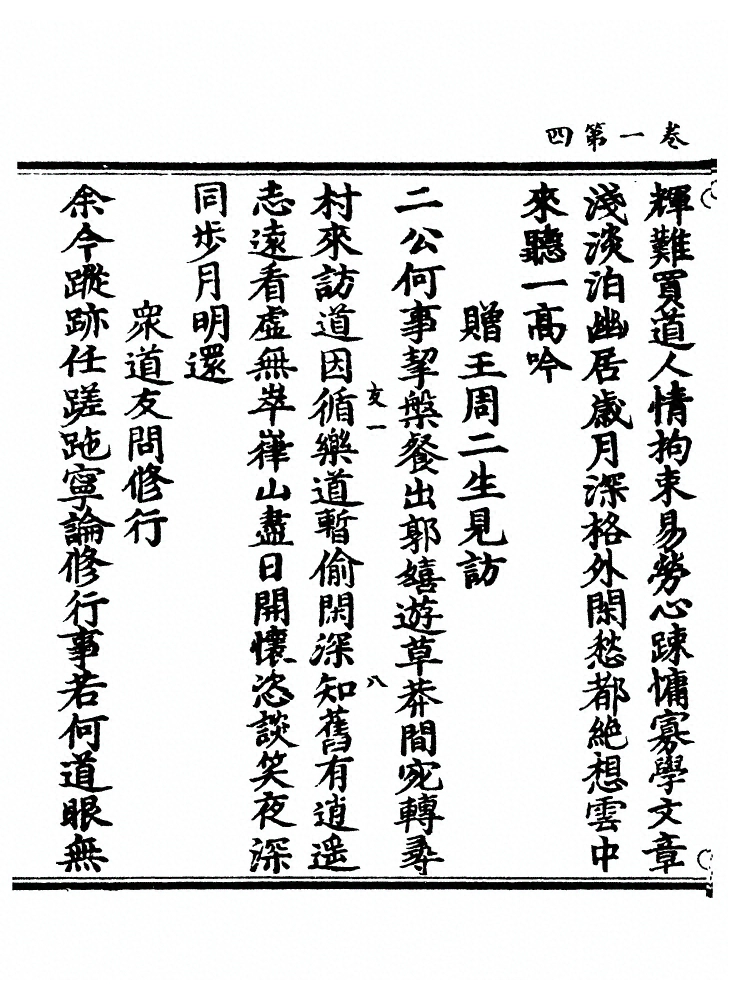 卷一第四
輝難買道人情拘束易勞心踈慵寡學文章
淺淡泊幽居歲月深格外閑愁都絕想雲中
來聽一高吟
贈王周二生見訪
二公何事挈盤餐出郭嬉遊草莽間宛轉尋
村來訪道因循樂道暫偷閑深知舊有逍遥
亥一
八
志遠看虛無崒嵂山盡日開懷恣談笑夜深
同步月明還
衆道友問修行
余今蹤跡任蹉跎寧論修行事若何道眼無